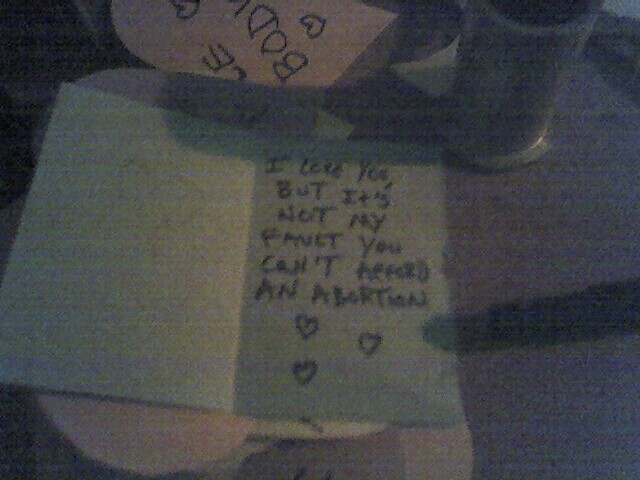 BODY
I LOVE YOU
BUT IT'S
NOT MY
FAULT YOU
CAN'T AFFORD
AN ABORTION